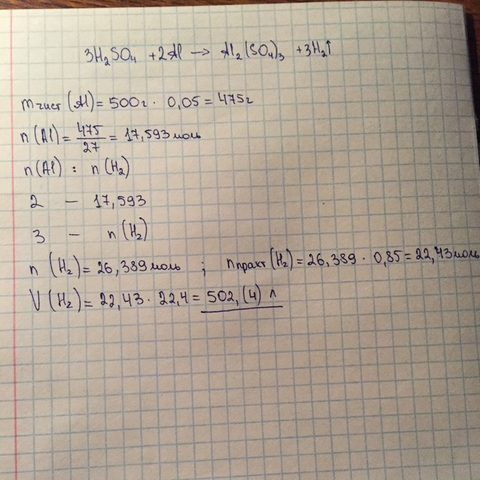 3H₂SO₄ + 2Al → Al₂(SO₄)₃ + 3H₂↑
mчист(Al) = 500г · 0,05 = 475г
n(Al) = 475/27 = 17,593 моль
n(Al) : n(H₂)
2 — 17,593
3 — n(H₂)
n(H₂) = 26,389 моль ; nпракт(H₂) = 26,389 · 0,85 = 22,43 моль
V(H₂) = 22,43 · 22,4 = 502,(4) л